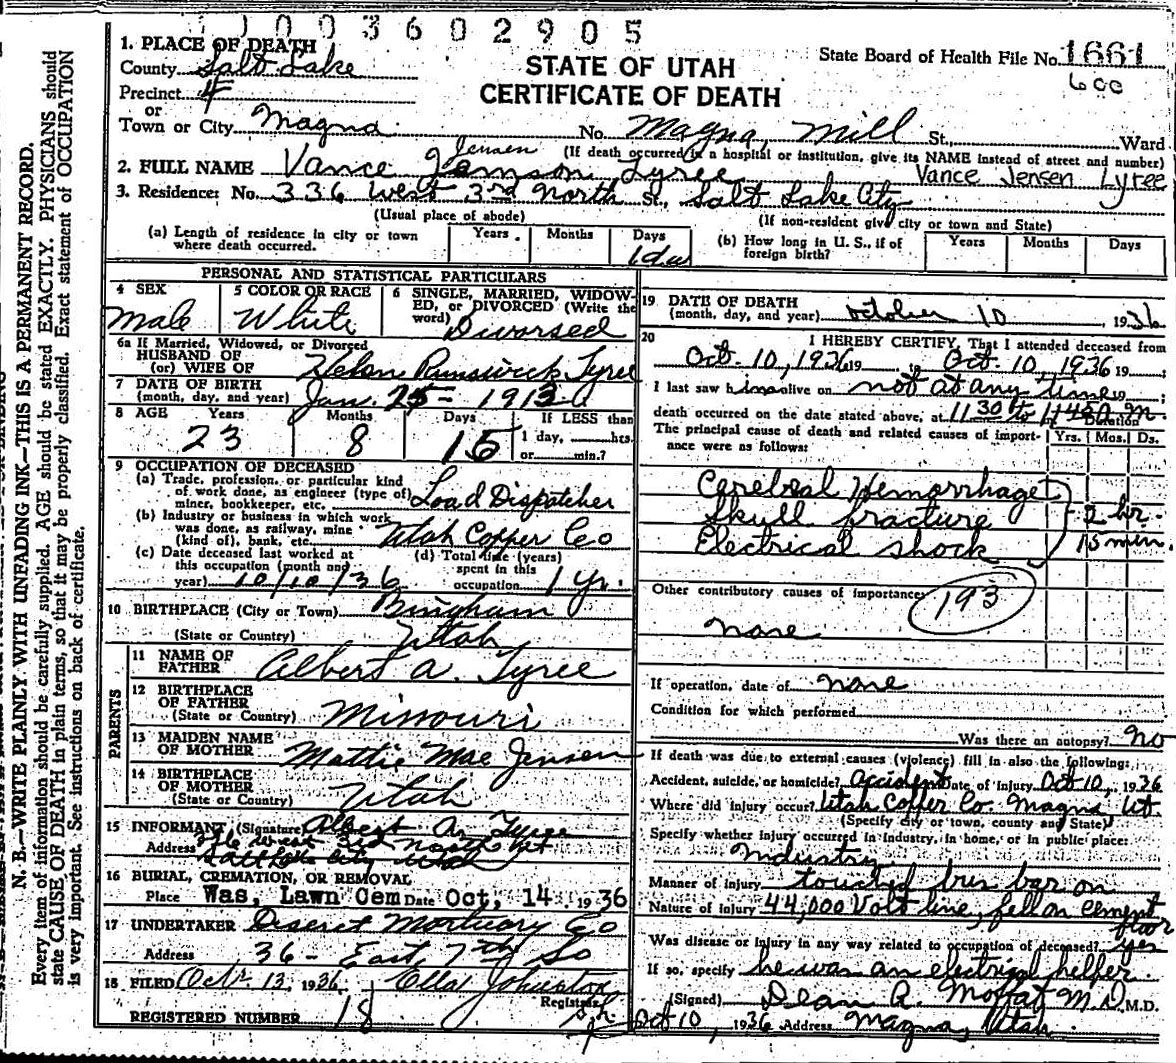 1003602905
1. PLACE OF DEATH
County Salt Lake
STATE OF UTAH
CERTIFICATE OF DEATH
State Board of Health File No. 1661
600
Precinct 4
or
Town or City Magna No. Magna, Mill St., Ward
(If death occurred in a hospital or institution, give its NAME instead of street and number)
Jensen
2. FULL NAME Vance Tyree Vance Jensen Lyree
3. Residence: No. 336 West 3rd North St., Salt Lake City
(Usual place of abode) (If non-resident give city or town and State)
(a) Length of residence in city or town where death occurred. Years Months Days 1 da
(b) How long in U. S., if of foreign birth? Years Months Days
PERSONAL AND STATISTICAL PARTICULARS
4 SEX Male
5 COLOR OR RACE White
6 SINGLE, MARRIED, WIDOWED, or DIVORCED (Write the word) Divorsed
6a If Married, Widowed, or Divorced
HUSBAND OF
(or) WIFE OF Helen Tyree
7 DATE OF BIRTH
(month, day, and year) Jan. 25 1913
8 AGE Years 23 Months 8 Days 15 If LESS than 1 day, hrs. or min.?
9 OCCUPATION OF DECEASED
(a) Trade, profession, or particular kind of work done, as engineer (type of) miner, bookkeeper, etc. Load Dispatcher
(b) Industry or business in which work was done, as railway, mine (kind of), bank, etc. Utah Copper Co
(c) Date deceased last worked at this occupation (month and year) 10/10/36
(d) Total time (years) spent in this occupation 1 yr.
10 BIRTHPLACE (City or Town) Bingham
(State or Country) Utah
PARENTS
11 NAME OF FATHER Albert A. Tyree
12 BIRTHPLACE OF FATHER
(State or Country) Missouri
13 MAIDEN NAME OF MOTHER Mattie Mae Jensen
14 BIRTHPLACE OF MOTHER
(State or Country) Utah
15 INFORMANT (Signature) Albert A. Tyree
Address West 3rd North St
Salt Lake City Utah
16 BURIAL, CREMATION, OR REMOVAL
Place Was, Lawn Cem Date Oct, 14 1936
17 UNDERTAKER Deseret Mortuary Co
Address 36 - East 7th So
18 FILED Oct. 13, 1936 Ella Johnston
Registrar
REGISTERED NUMBER 18
19 DATE OF DEATH
(month, day, and year) October 10, 1936
20 I HEREBY CERTIFY, That I attended deceased from
Oct. 10, 1936 19 , to Oct. 10, 1936 19 ;
I last saw him alive on not at any time 19 ;
death occurred on the date stated above, at 11 30 to 11 45 A m.
The principal cause of death and related causes of importance were as follows:
Duration
Yrs. Mos. Ds.
Cerebral Hemorrhage
Skull fracture 2 hr.
Electrical shock 15 min.
Other contributory causes of importance:
193
none
If operation, date of none
Condition for which performed
Was there an autopsy? No
If death was due to external causes (violence) fill in also the following:
Accident, suicide, or homicide? accident Date of injury Oct 10, 1936
Where did injury occur? Utah Copper Co. Magna Ut
(Specify city or town, county and State)
Specify whether injury occurred in industry, in home, or in public place:
Industry
Manner of injury touched bus bar on
Nature of injury 44,000 Volt line, fell on cement floor
Was disease or injury in any way related to occupation of deceased? yes
If so, specify he was an electrical helper
(Signed) Dean A. Moffat M.D. M.D.
Oct 10, 1936 Address Magna, Utah.
N. B.—WRITE PLAINLY WITH UNFADING INK—THIS IS A PERMANENT RECORD.
Every item of information should be carefully supplied. AGE should be stated EXACTLY. PHYSICIANS should
state CAUSE OF DEATH in plain terms, so that it may be properly classified. Exact statement of OCCUPATION
is very important. See instructions on back of certificate.